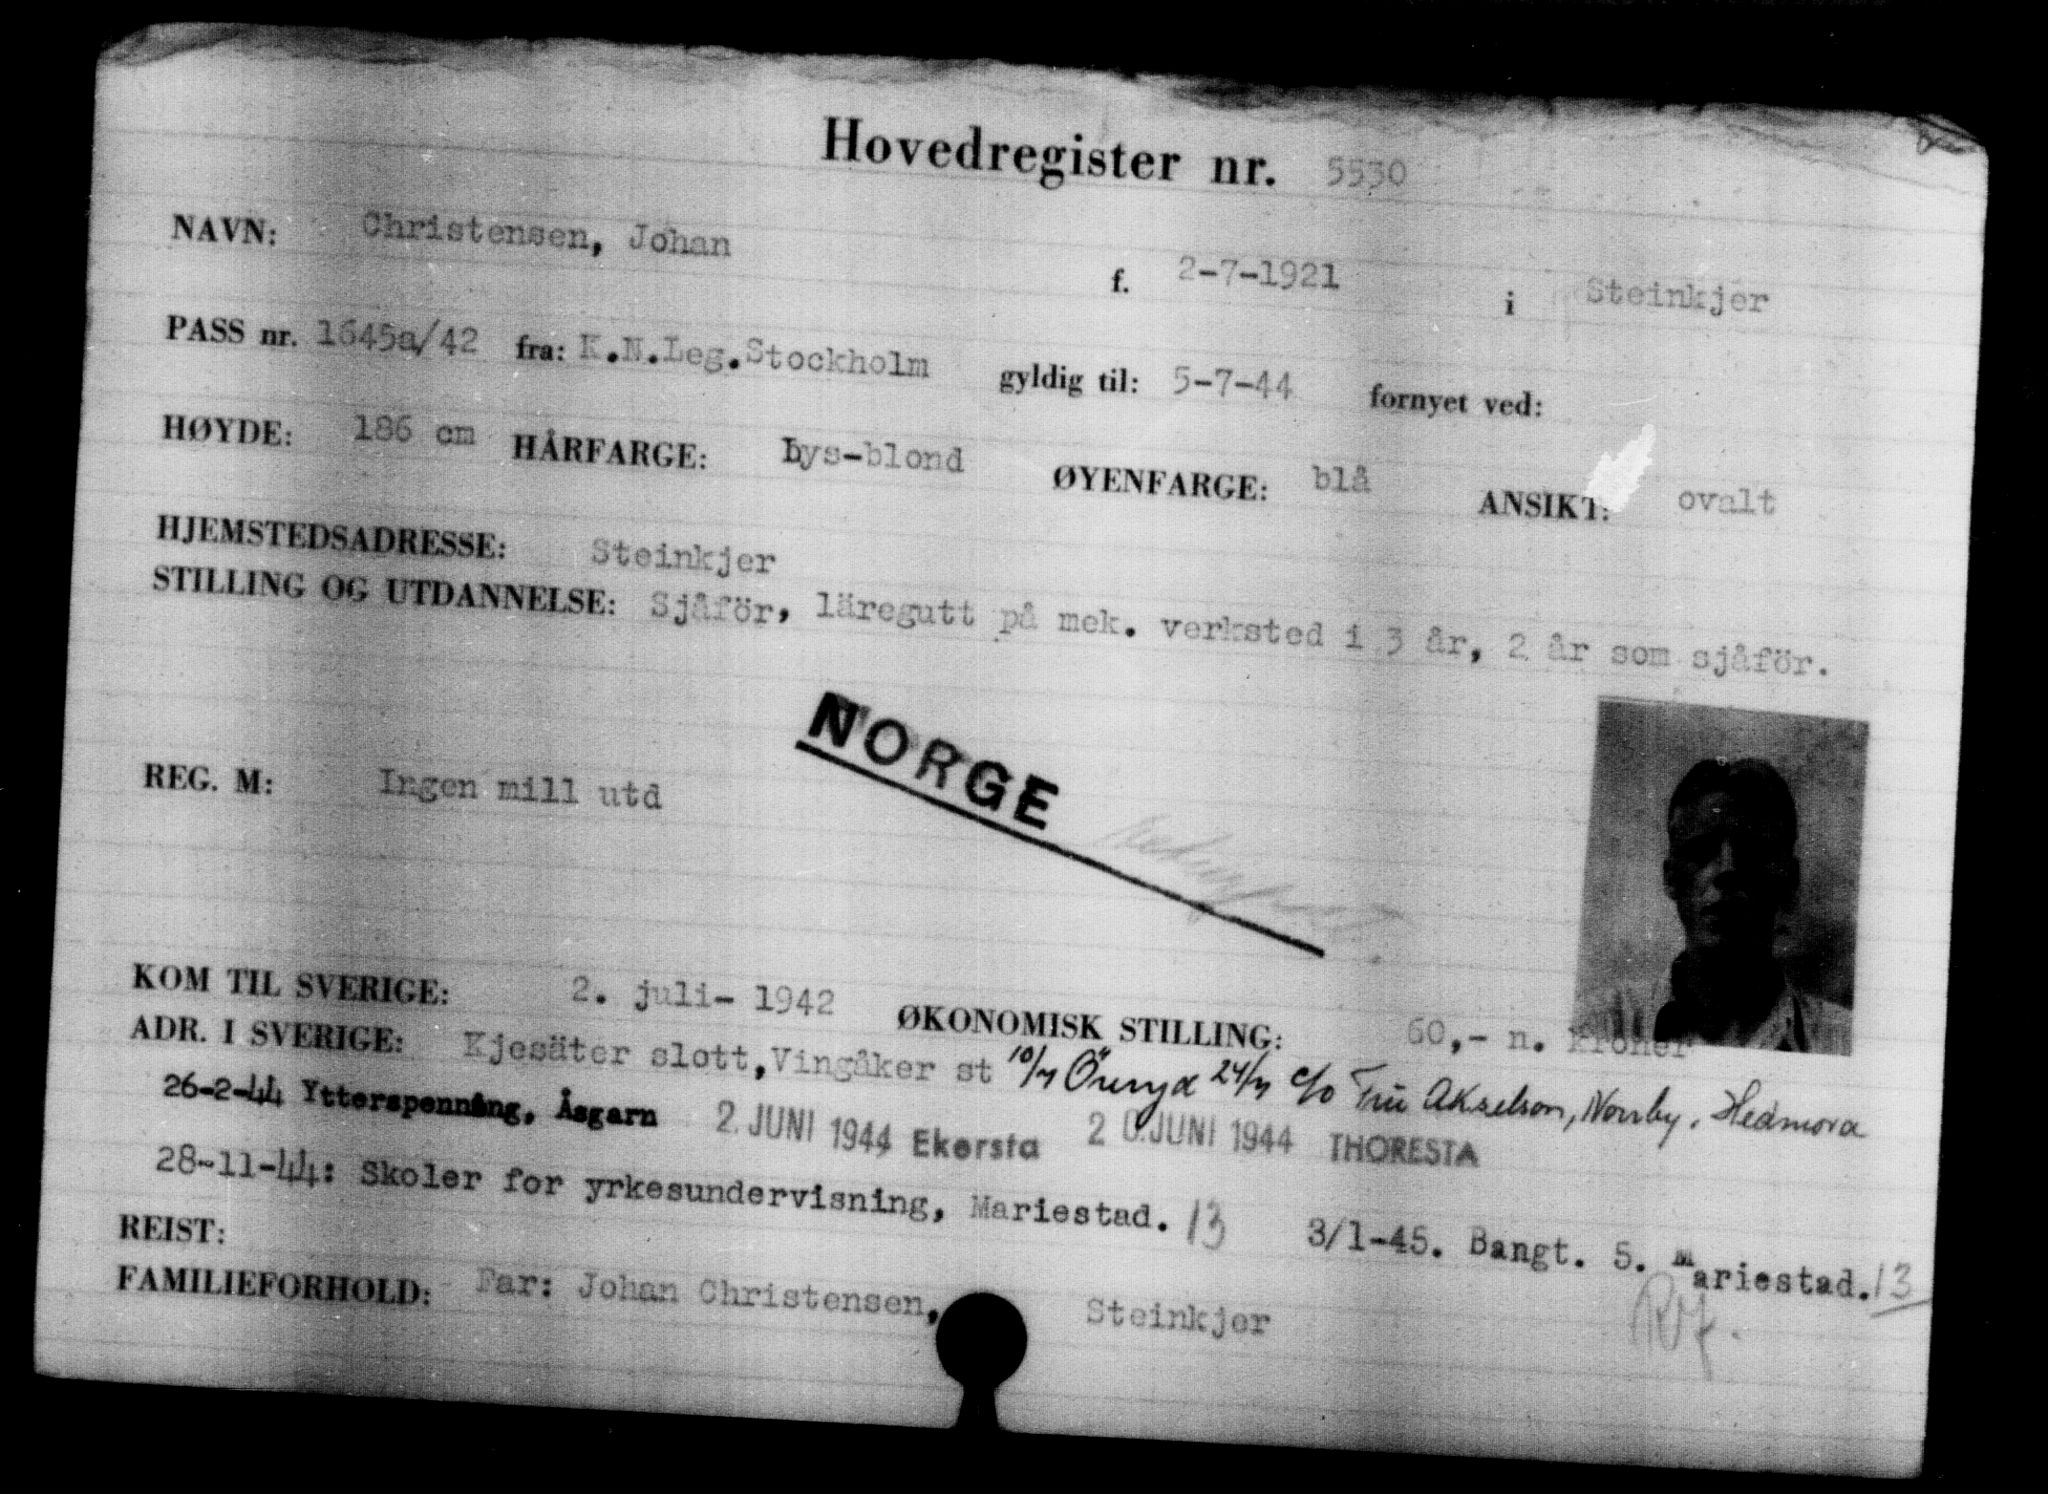 Hovedregister nr. 5530
NAVN: Christensen, Johan f. 2-7-1921 i Steinkjer
PASS nr. 1645a/42 fra: K.N.Leg.Stockholm gyldig til: 5-7-44 fornyet ved:
HØYDE: 186 cm HÅRFARGE: Lys-blond ØYENFARGE: blå ANSIKT: ovalt
HJEMSTEDSADRESSE: Steinkjer
STILLING OG UTDANNELSE: Sjåför, läregutt på mek. verksted i 3 år, 2 år som sjåför.
NORGE
REG. M: Ingen mill utd
KOM TIL SVERIGE: 2. juli- 1942 ØKONOMISK STILLING: 60,- n. kroner
ADR. I SVERIGE: Kjesäter slott, Vingåker st 10/7 Öreryd 24/7 c/o Fru Akselson, Norrby, Hedmora
26-2-44 Ytterspenning, Åsgarn 2. JUNI 1944 Ekersta 20. JUNI 1944 THORESTA
28-11-44: Skoler for yrkesundervisning, Mariestad. 13 3/1-45. Bangt. 5. Mariestad. 13
REIST:
FAMILIEFORHOLD: Far: Johan Christensen, Steinkjer